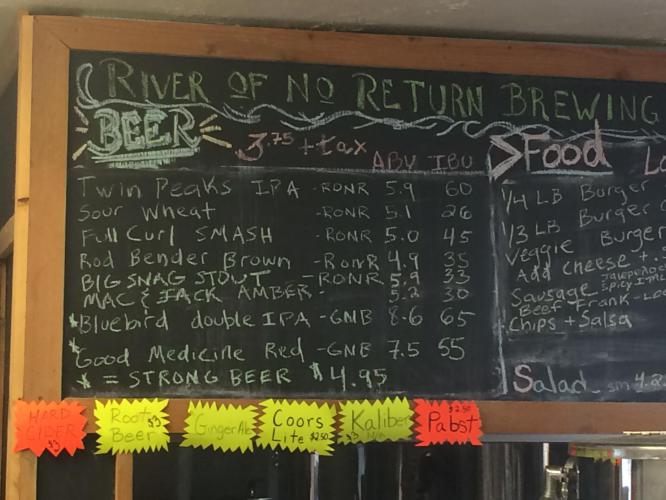 RIVER OF NO RETURN BREWING
BEER 3.75 + tax ABV IBU
Twin Peaks IPA - RONR 5.9 60
Sour Wheat - RONR 5.1 26
Full Curl SMASH - RONR 5.0 45
Rod Bender Brown - RONR 4.9 35
BIG SNAG STOUT - RONR 5.9 33
MAC & JACK AMBER - 5.2 30
* Bluebird double IPA - GNB 8.6 65
* Good Medicine Red - GNB 7.5 55
* = STRONG BEER $4.95
> Food
1/4 LB Burger
1/3 LB Burger
Veggie Burger
Add cheese +.
Sausage
Beef Frank
Chips + Salsa
Salad - sm
HARD CIDER $3
Root Beer $3
Ginger Ale
Coors Lite $2.50
Kaliber $3 N/A
$2.50 Pabst